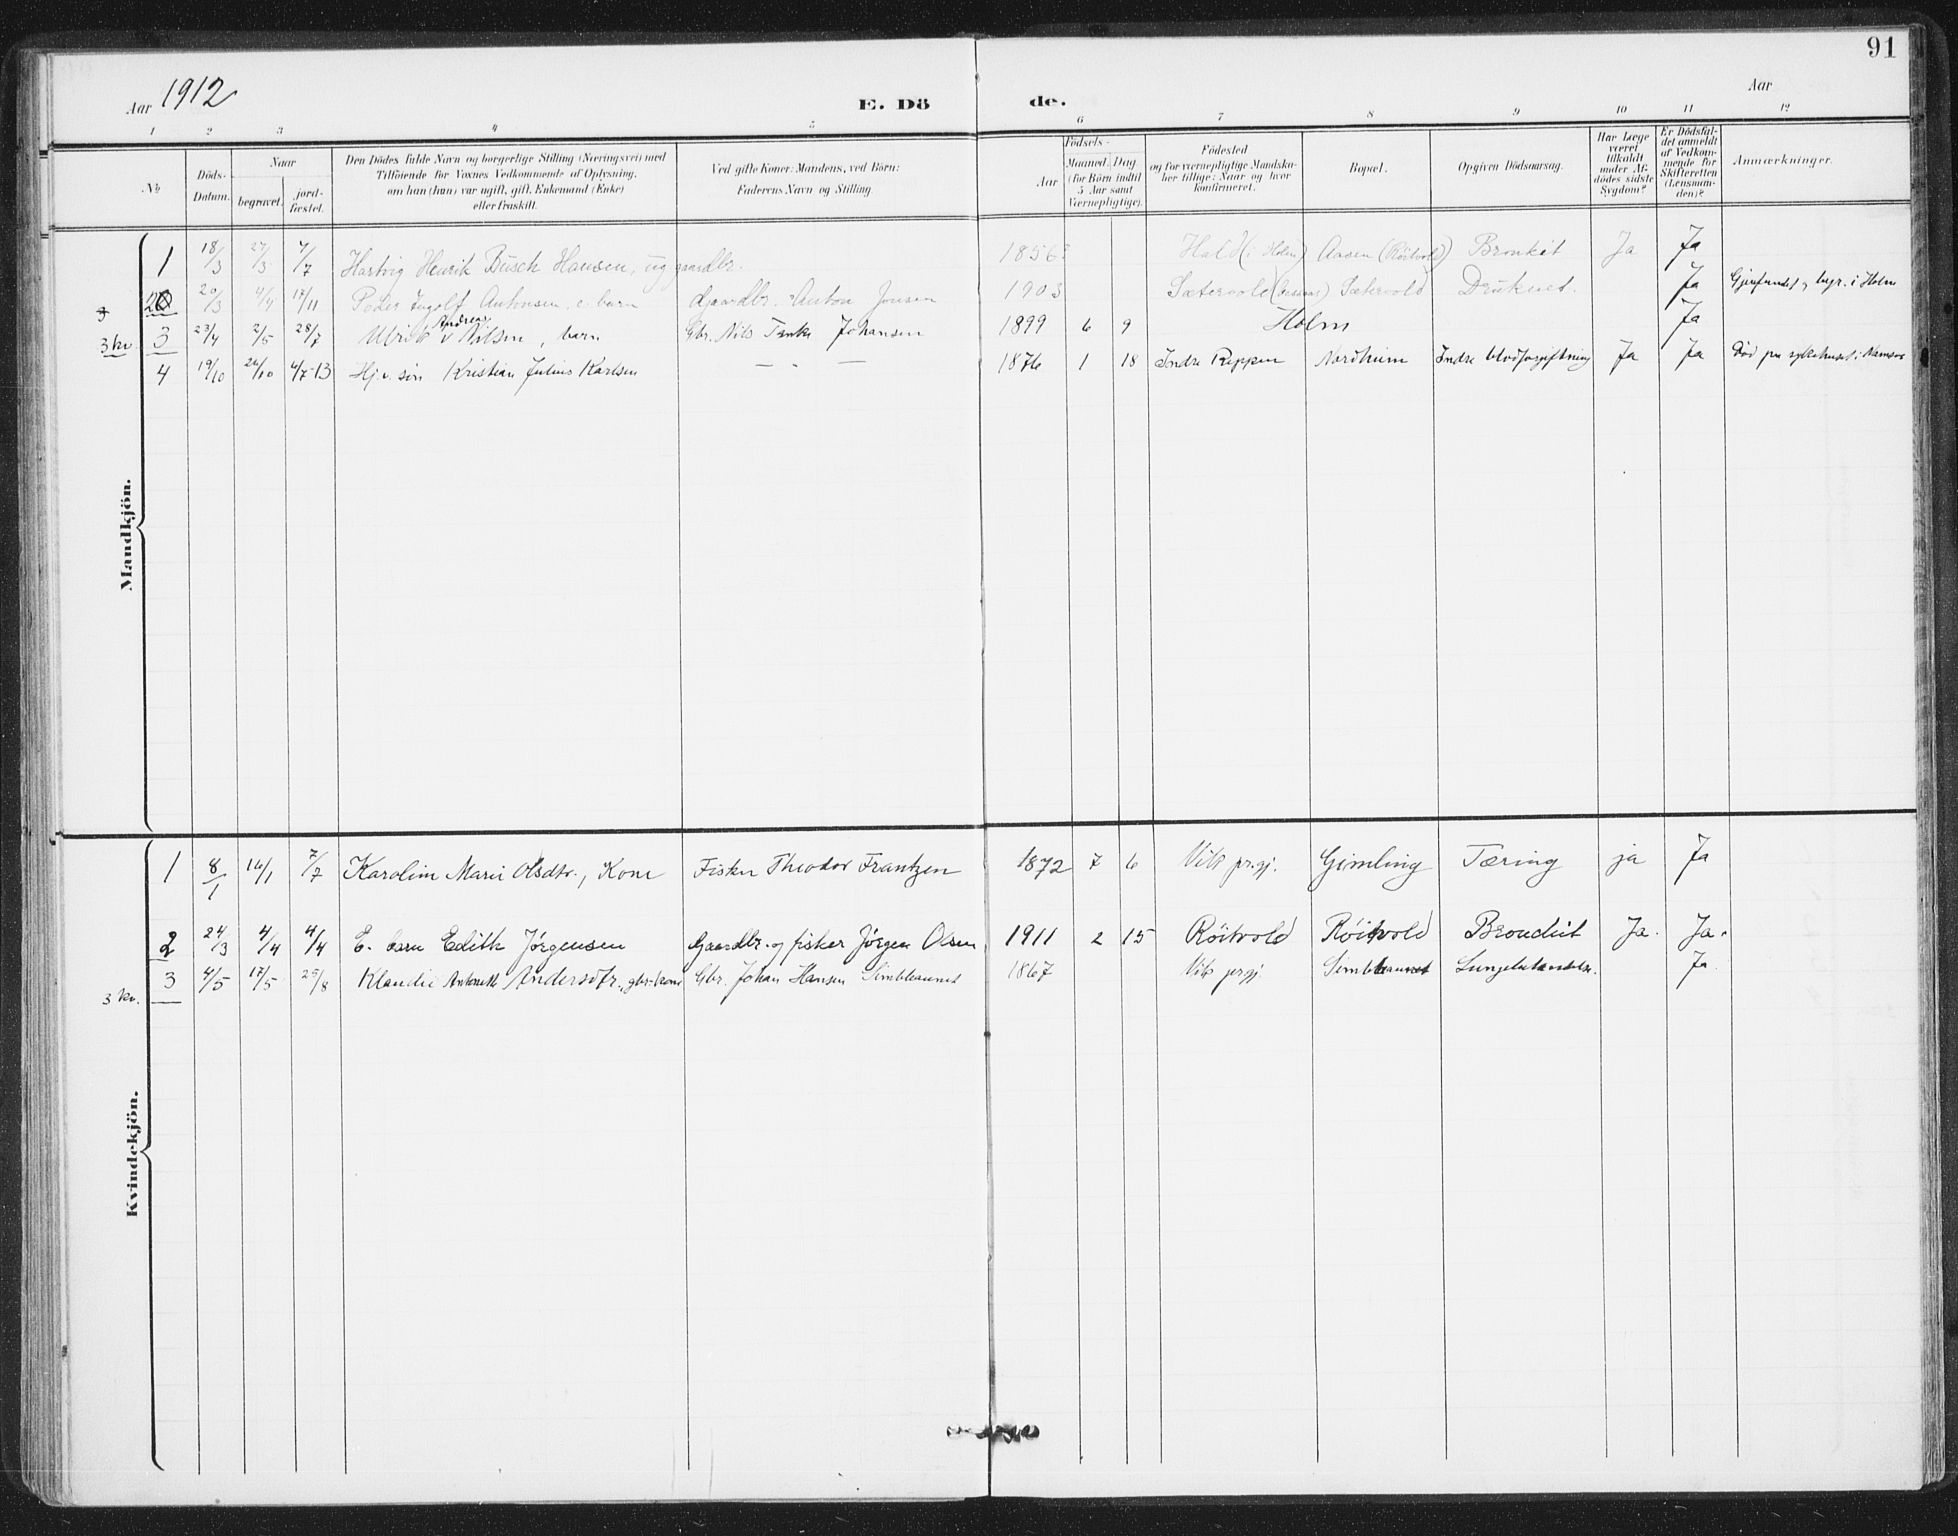 91
Aar 1912
E. Dö
de.
Aar
1 2 3 4 5 6 7 8 9 10 11 12
No
Döds-Datum.
Naar
begravet.
jord-fæstet.
Den Dödes fulde Navn og borgerlige Stilling (Næringsvei) med
Tilföiende for Voxnes Vedkommende af Oplysning,
om han (hun) var ugift, gift, Enkemand (Enke)
eller fraskilt.
Ved gifte Koner: Mandens, ved Börn:
Faderens Navn og Stilling.
Födsels-
Aar
Maaned. Dag
(for Börn indtil
5 Aar samt
Værnepligtige).
Födested
og for værnepligtige Mandska-
ber tillige: Naar og hvor
konfirmeret.
Bopæl.
Opgiven Dödsaarsag.
Har Læge
været
tilkaldt
under Af-
dödes sidste
Sygdom?
Er Dödsfal-
det anmeldt
af Vedkom-
mende for
Skifteretten
(Lensman-
den)?
Anmærkninger.
Mandkjön.
1 18/3 27/3 7/7 Hartvig Henrik Busch Hansen, ug gaardbr. 1856 Hald (i Holm) Aasen (Röitvold) Bronkit Ja Ja
2 20/3 4/4 17/11 Peder Ingolf Antonsen e. barn Gaardbr. Anton Jonsen 1903 Sætervold Sætervold Druknet. Ja Gjenfundet og begr. i Holm
3 kv. 3 23/4 2/5 28/7 Ulrik Andreas Nilsen, barn Gbr. Nils Johansen 1899 6 9 Holm Ja
4 19/10 26/10 4/7-13 Hj. v. søn Kristian Julius Karlsen — — 1876 1 18 Indre Reppen Nordhum Indre blodforgiftning Ja Ja Død paa sykehuset i Namsos
Kvindekjön.
1 8/1 16/1 7/7 Karolin Marie Olsdtr., Kone Fisker Theodor Frantzen 1872 7 6 Vik pr.gj. Gimling Tæring ja Ja
2 24/3 4/4 4/4 E. barn Edith Jörgensen Gaardbr. og fisker Jörgen Olsen 1911 2 15 Röitvold Röitvold Bronchit Ja. Ja.
3 kv. 3 4/5 17/5 25/8 Klaudie Antonette Andersdtr., gbr. kone Gbr. Johan Hansen Simbleaunet 1867 Vik prgj. Simbleaunet Lungebetændelse. Ja